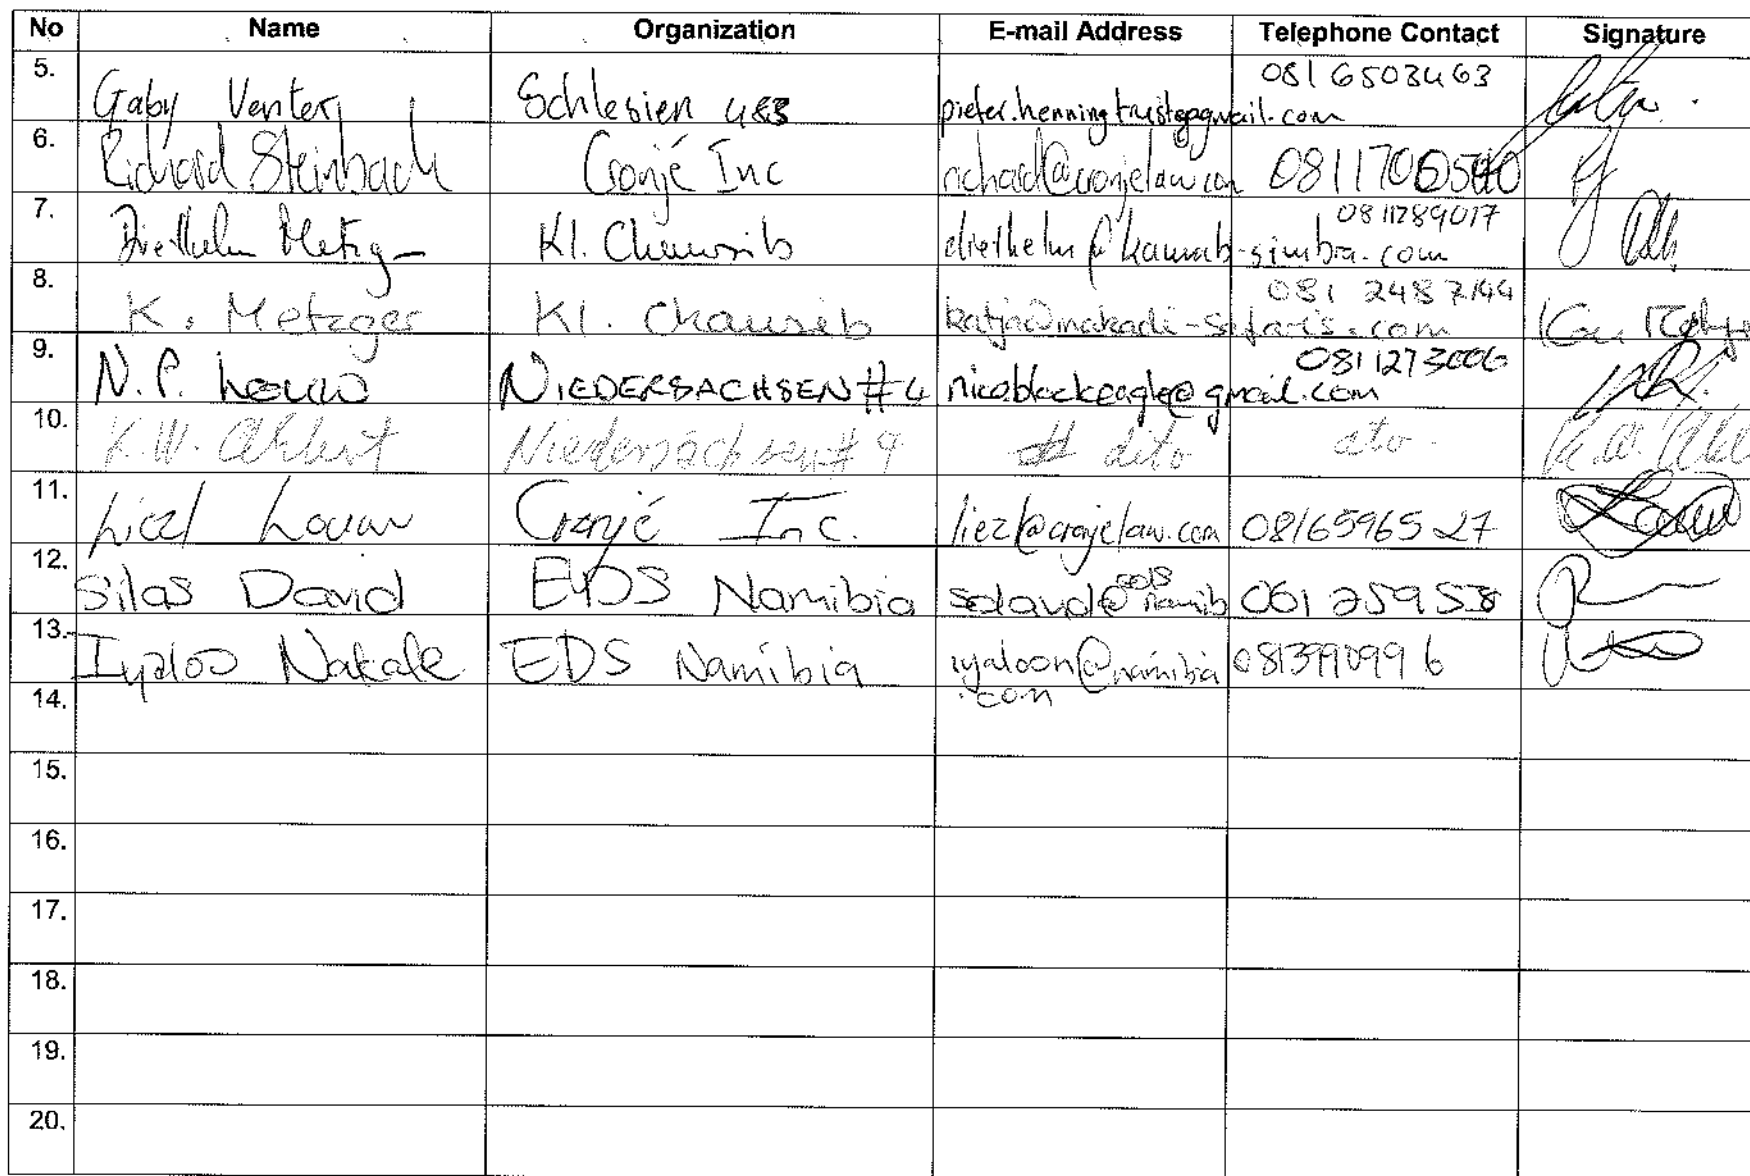 No Name Organization E-mail Address Telephone Contact Signature
5. Gaby Venter Schlesien 483 pieter.henningtrust@gmail.com 081 6503463
6. Richard Steinbach Cronjé Inc richard@cronjelaw.com
7. Diethelm Metzger Kl. Chausib 0811289017
8. K. Metzger Kl. Chauseb katja@makadi-safaris.com 081 2487144
9. N.P. Louw NIEDERSACHSEN #4 nicoblackeagle@gmail.com 0811273006
10. K.W. Niedersachsen # 4 dito dito
11. Liezl Louw Cronjé Inc. liezl@cronjelaw.com 0816596527
12. Silas David EDS Namibia 061 259 558
13. Iyaloo Nakale EDS Namibia iyaloon@namibia 0813990996
.com
14.
15.
16.
17.
18.
19.
20.